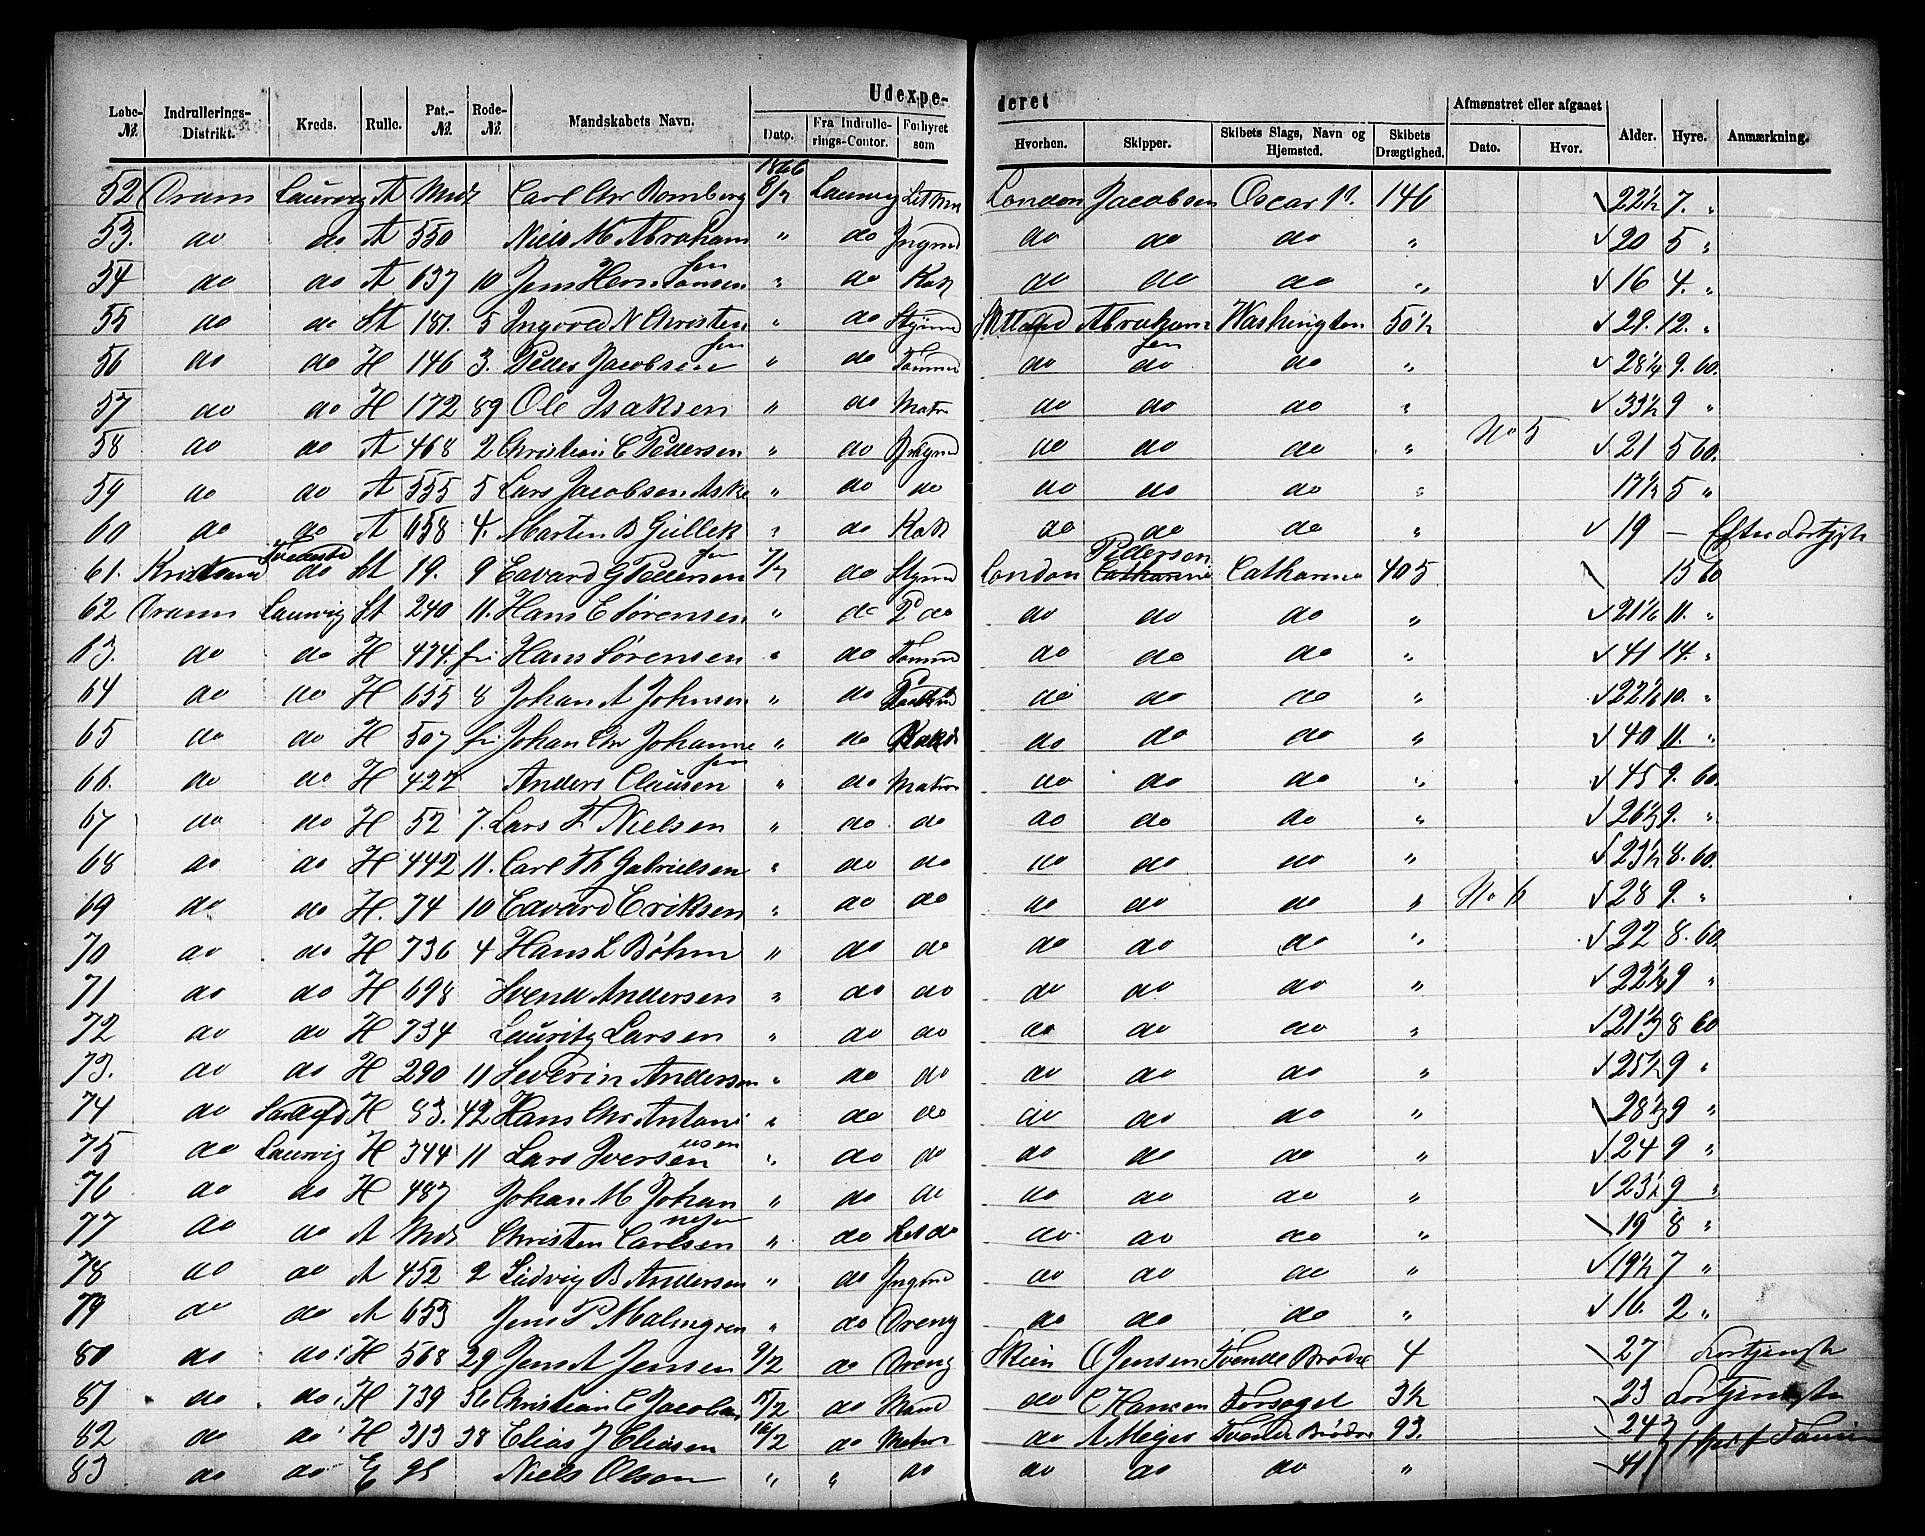 Udexpe- deret
Løbe-№. Indrullerings-Distrikt. Kreds. Rulle. Pat.-№. Rode-№. Mandskabets Navn. Dato. Fra Indrullerings-Contor. Forhyret som Hvorhen. Skipper. Skibets Slags, Navn og Hjemsted. Skibets Drægtighed. Afmønstret eller afgaaet Dato. Hvor. Alder. Hyre. Anmærkning.
1866
52 Dram Laurvig A Carl Chr Romberg 8/2 Laurvig London Jacobsen Oscar 146 22½ 7. "
53. do do A 550 Niels M Abraham sen " do Jngmd do do do " 20 5 "
54 do do A 637 10 Jens Herm Jansen " do Kok do do do " 16 4. "
55 do do St 181. 5 Ingvald N Christen sen " do Styrmd Abraham sen Washington 50½ 29. 12. "
56 do do H 146 3. Peder Jacobsen " do Tømmd do do do " 28¼ 9. 60.
57 do do H 172 89 Ole Isaksen " do Matr do do do " 33½ 9 "
58 do do A 468 2 Christian C Pedersen " do Jngmd do do do " No 5 21 5 60.
59 do do A 555 5 Lars Jacobsen Aske " do do do do do " 17½ 5 "
60 do do A 658 4. Marten B Gullik sen " do Kok do do do " 19 — Efter Fortjste
61. Kristsand Tvedest do St 19. 9 Edvard G Pedersen 7/2 do Styrmd London Pedersen Catharina Catharina 405 15 60
62 Dram Laurvig St 240 11. Hans C Sørensen " do do do do do " 21 11. "
63. do do H 434. fri Hans Sørensen " do Tømmd do do do " 41 14. "
64 do do H 655 8 Johan A Johnsen " do do do do " 22 10. "
65 do do H 507 fri Johan Chr Johanne sen " do Kok do do do " 40 11. "
66. do do H 427 Anders Clausen " do Matros do do do " 45 9. 60
67 do do H 52 7. Lars F Nielsen " do do do do do " 26 9. "
68 do do H 442 11. Carl Th Gabrielsen " do do do do do " 23½ 8. 60.
69 do do H. 74 10 Edvard Eriksen " do do do do do " No 6 28 9. "
70 do do H 736 4 Hans L Bøhm " do do do do do " 22 8. 60
71 do do H 698 Svend Andersen " do do do do do " 22 9 "
72 do do H 734 Lauritz Larsen " do do do do do " 21 8 60
73. do do H 290 11 Severin Andersen " do do do do do " 25½ 9 "
74 do Sandefd H 83. 42 Hans Chr Antoni usen " do do do do do " 28 9 "
75 do Laurvig H 344 11 Lars Iversen " do do do do do " 24 9 "
76 do do H 487 Johan M Johan nesen " do do do do do " 23½ 9 "
77 do do A Christen Carlsen " do Let do do do do " 19 8 "
78 do do A 452 2 Ludvig B Andersen " do Jngmd do do do " 19½ 7 "
79 do do A 653 Jens P Malmgren " do Dreng do do do " 16. 2 "
80 do do H 568 29 Jens A Jensen 9/2 do Dreng Skien O Jensen Tvende Brødre 4 27 Fortjenste
81 do do H 739 36 Christian C Jacobsen 15/2 do Mand do C Hansen Forsøget 3½ 23 Fortjenste
82 do do H 313 38 Elias J Eliasen 16/2 do Matros do A Meyer Tvende Brødre 93. 24
83 do do E 95 Niels Olsen " " do do do do " 41